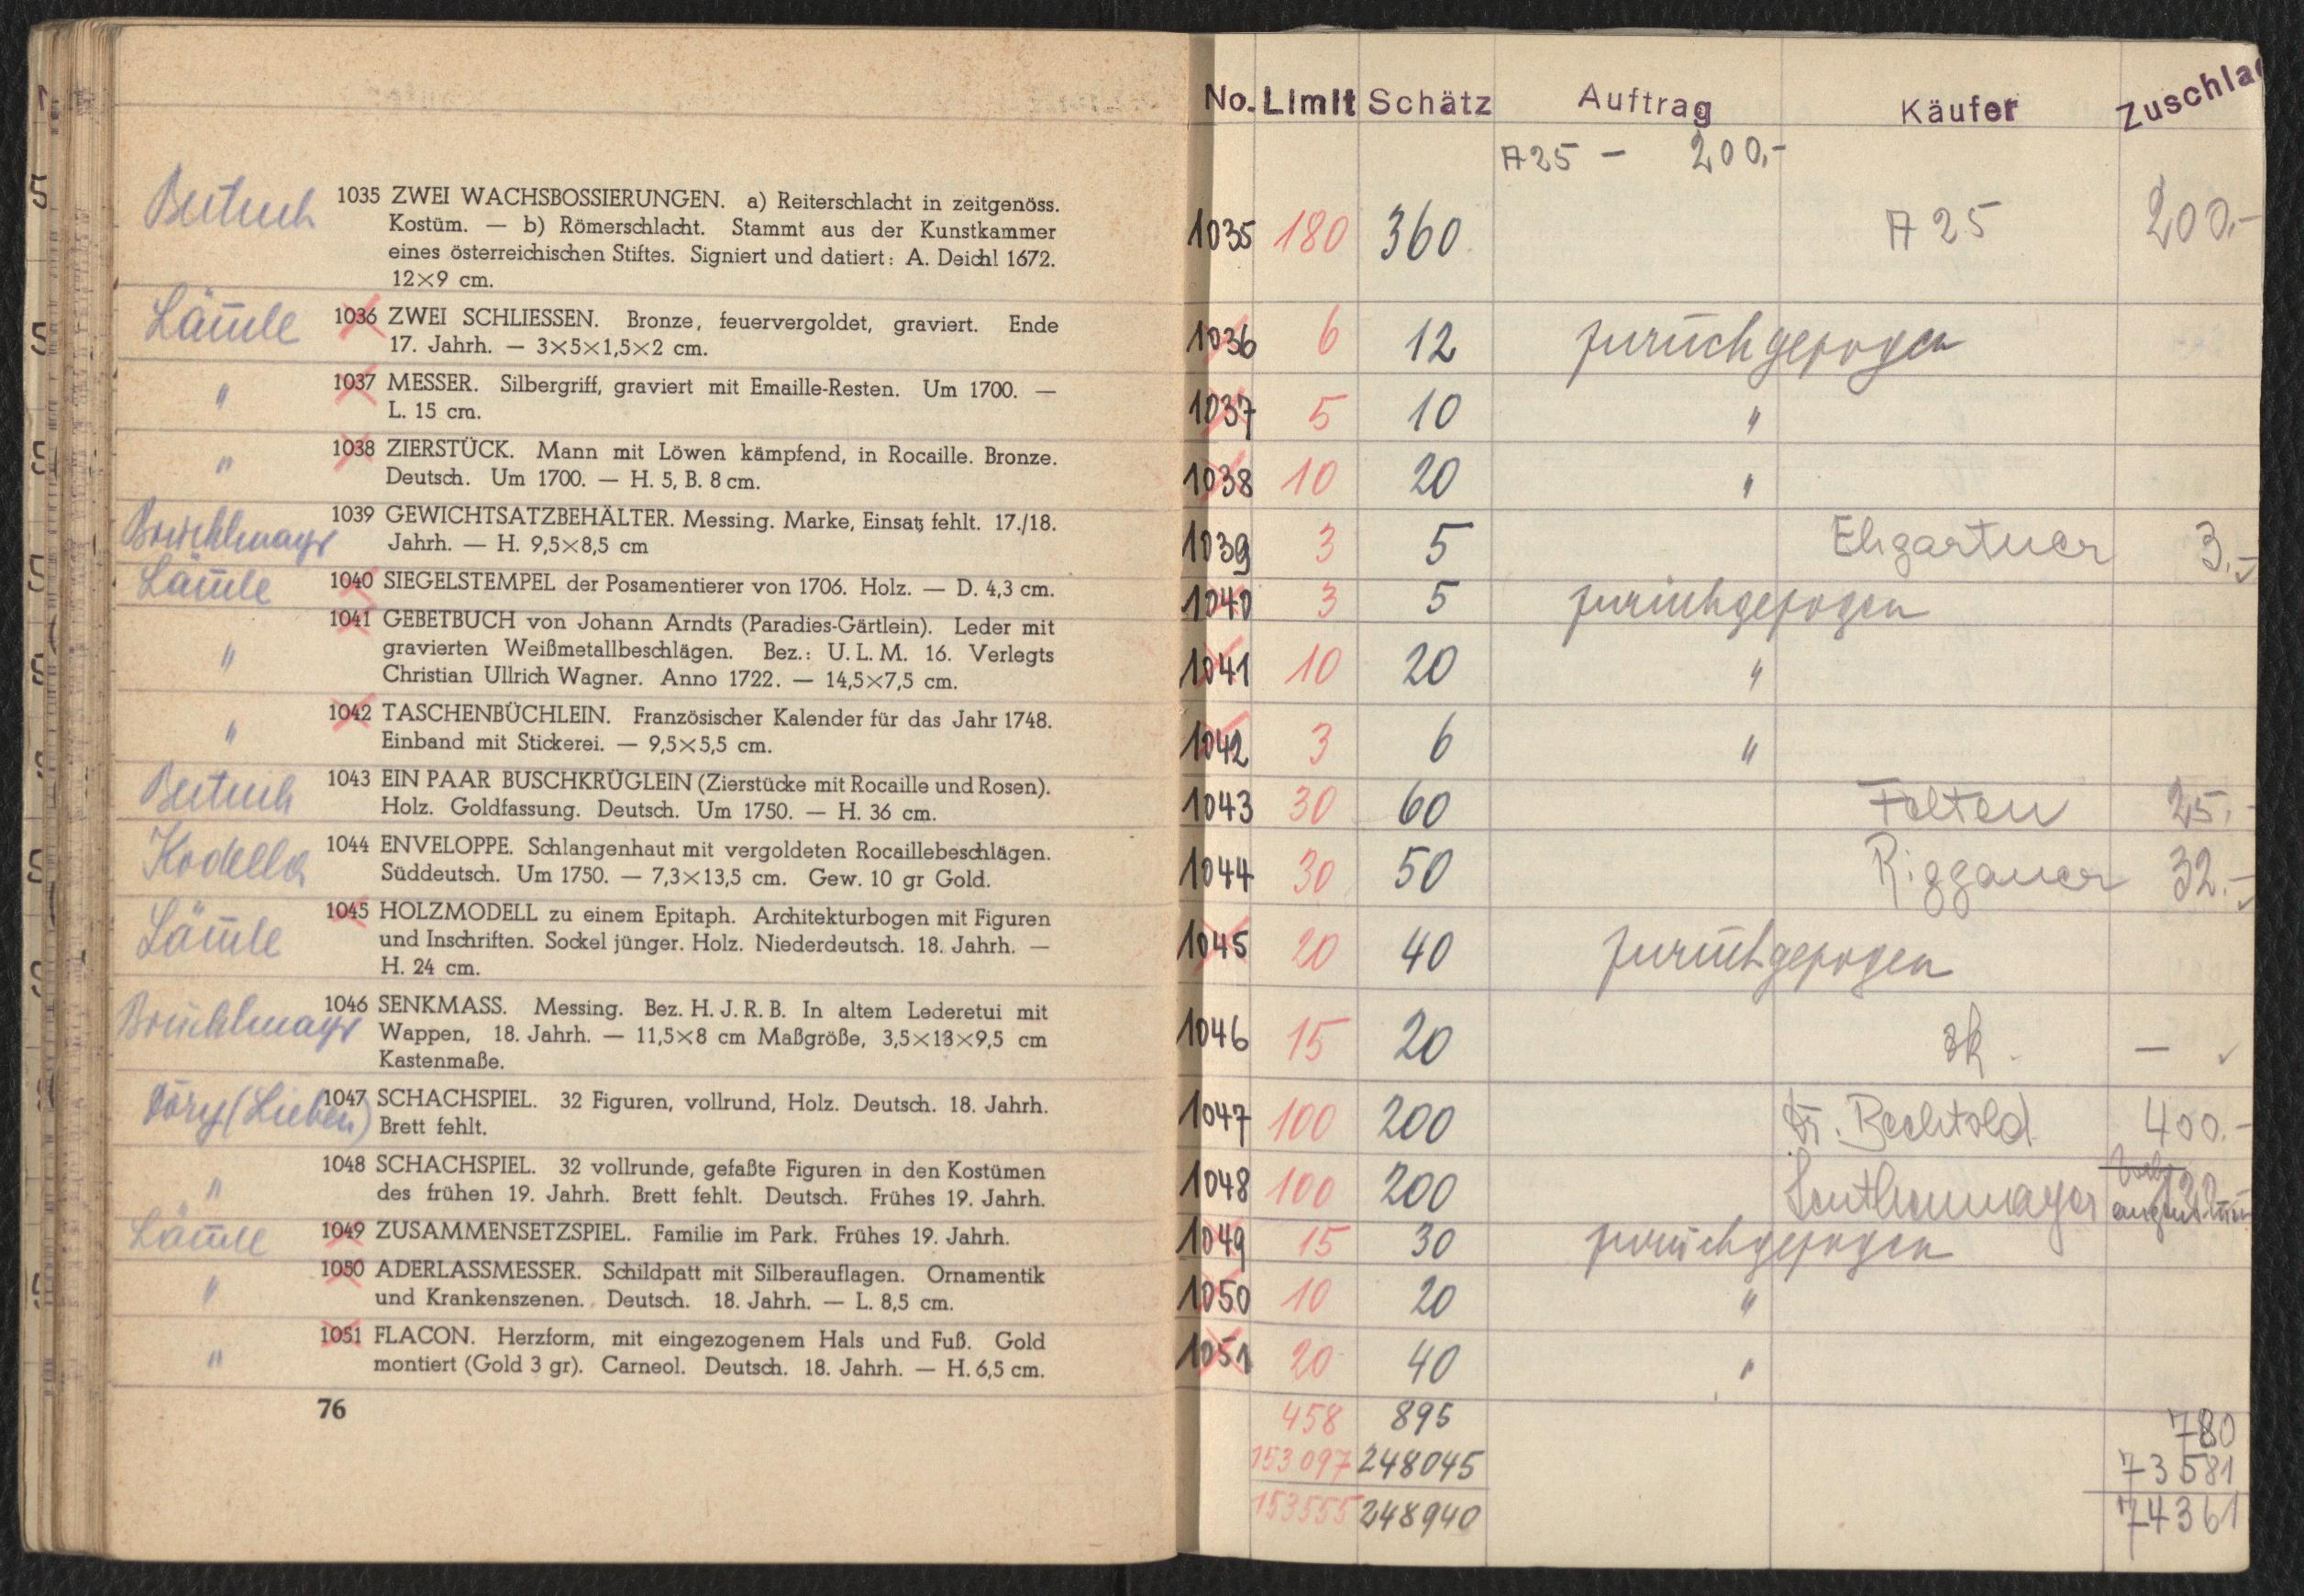 Bertuch
1035 ZWEI WACHSBOSSIERUNGEN. a) Reiterschlacht in zeitgenöss.
Kostüm. — b) Römerschlacht. Stammt aus der Kunstkammer
eines österreichischen Stiftes. Signiert und datiert: A. Deichl 1672.
12×9 cm.
Läm̄le
1036 ZWEI SCHLIESSEN. Bronze, feuervergoldet, graviert. Ende
17. Jahrh. — 3×5×1,5×2 cm.
"
1037 MESSER. Silbergriff, graviert mit Emaille-Resten. Um 1700. —
L. 15 cm.
"
1038 ZIERSTÜCK. Mann mit Löwen kämpfend, in Rocaille. Bronze.
Deutsch. Um 1700. — H. 5, B. 8 cm.
Brüchlmayr
1039 GEWICHTSATZBEHÄLTER. Messing. Marke, Einsatz fehlt. 17./18.
Jahrh. — H. 9,5×8,5 cm
Läm̄le
1040 SIEGELSTEMPEL der Posamentierer von 1706. Holz. — D. 4,3 cm.
1041 GEBETBUCH von Johann Arndts (Paradies-Gärtlein). Leder mit
"
gravierten Weißmetallbeschlägen. Bez.: U. L. M. 16. Verlegts
Christian Ullrich Wagner. Anno 1722. — 14,5×7,5 cm.
1042 TASCHENBÜCHLEIN. Französischer Kalender für das Jahr 1748.
"
Einband mit Stickerei. — 9,5×5,5 cm.
Bertuch
1043 EIN PAAR BUSCHKRÜGLEIN (Zierstücke mit Rocaille und Rosen).
Holz. Goldfassung. Deutsch. Um 1750. — H. 36 cm.
Kodella
1044 ENVELOPPE. Schlangenhaut mit vergoldeten Rocaillebeschlägen.
Süddeutsch. Um 1750. — 7,3×13,5 cm. Gew. 10 gr Gold.
Läm̄le
1045 HOLZMODELL zu einem Epitaph. Architekturbogen mit Figuren
und Inschriften. Sockel jünger. Holz. Niederdeutsch. 18. Jahrh. —
H. 24 cm.
Brüchlmayr
1046 SENKMASS. Messing. Bez. H. J. R. B. In altem Lederetui mit
Wappen, 18. Jahrh. — 11,5×8 cm Maßgröße, 3,5×13×9,5 cm
Kastenmaße.
Döry (Lieben)
1047 SCHACHSPIEL. 32 Figuren, vollrund, Holz. Deutsch. 18. Jahrh.
Brett fehlt.
"
1048 SCHACHSPIEL. 32 vollrunde, gefaßte Figuren in den Kostümen
des frühen 19. Jahrh. Brett fehlt. Deutsch. Frühes 19. Jahrh.
Läm̄le
1049 ZUSAMMENSETZSPIEL. Familie im Park. Frühes 19. Jahrh.
"
1050 ADERLASSMESSER. Schildpatt mit Silberauflagen. Ornamentik
und Krankenszenen. Deutsch. 18. Jahrh. — L. 8,5 cm.
"
1051 FLACON. Herzform, mit eingezogenem Hals und Fuß. Gold
montiert (Gold 3 gr). Carneol. Deutsch. 18. Jahrh. — H. 6,5 cm.
76
No. Limit Schätz Auftrag Käufer Zuschla
A 25 — 200,-
1035 180 360 A 25 200,-
1036 6 12 zurückgezogen
1037 5 10 "
1038 10 20 "
1039 3 5 Ehgartner 3.-
1040 3 5 zurückgezogen
1041 10 20 "
1042 3 6 "
1043 30 60 Felten 25.-
1044 30 50 Riggauer 32.-
1045 20 40 zurückgezogen
1046 15 20 —
1047 100 200 Dr. Bechtold 400.-
1048 100 200 120
1049 15 30 zurückgezogen
1050 10 20 "
1051 20 40 "
458 895 780
153097 248045 73581
153555 248940 74361